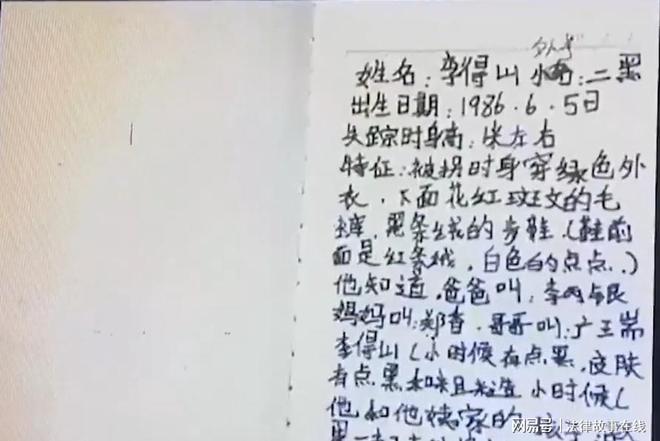 外号
姓名:李得山 小 : 二黑
出生日期:1986.6.5日
失踪时身高:米左右
特征:被拐时身穿绿色外
衣,下面花红斑文的毛
裤,黑条绒的步鞋(鞋前
面是红条绒,白色的点点..)
他知道,爸爸叫:李丙银
妈妈叫:郑香.哥哥叫:广王岽
李得山(小时候有点黑,皮肤
有点黑 小时候(
他和他姨家的
网易号 | 法律故事在线